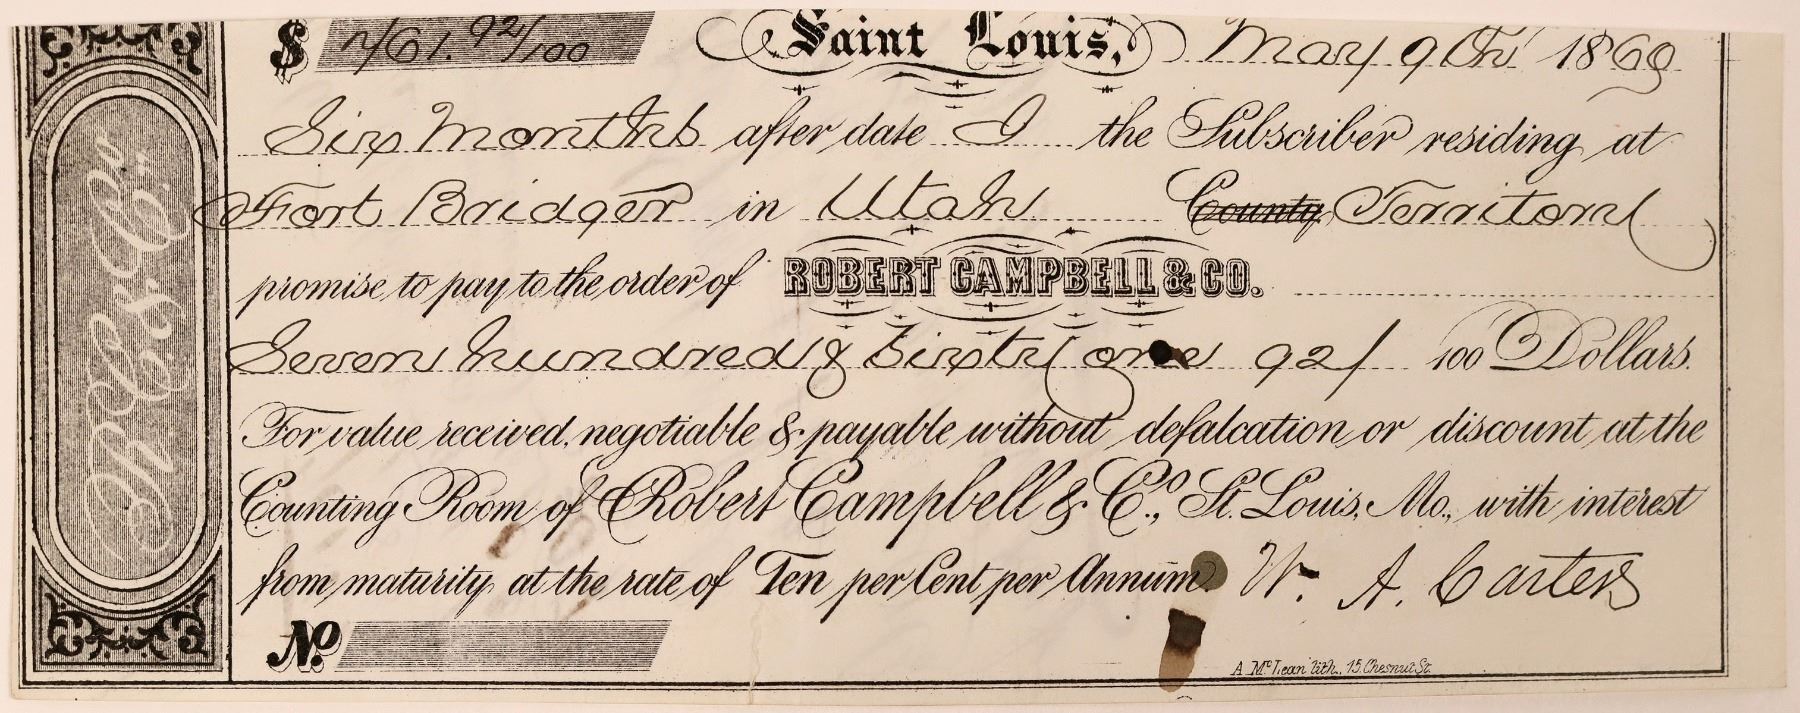 $ 761. 92/100 Saint Louis, May 9th 1868
Six Months after date I the Subscriber residing at
Fort Bridger in Utah County Territory
promise to pay to the order of ROBERT CAMPBELL & CO.
Seven hundred & Sixty one 92/ 100 Dollars.
For value received, negotiable & payable without defalcation or discount at the
Counting Room of Robert Campbell & Co., St. Louis, Mo., with interest
from maturity at the rate of Ten per Cent per Annum. W. A. Carter
No.
A. McLean lith., 15. Chesnut St.
R. C. & Co.